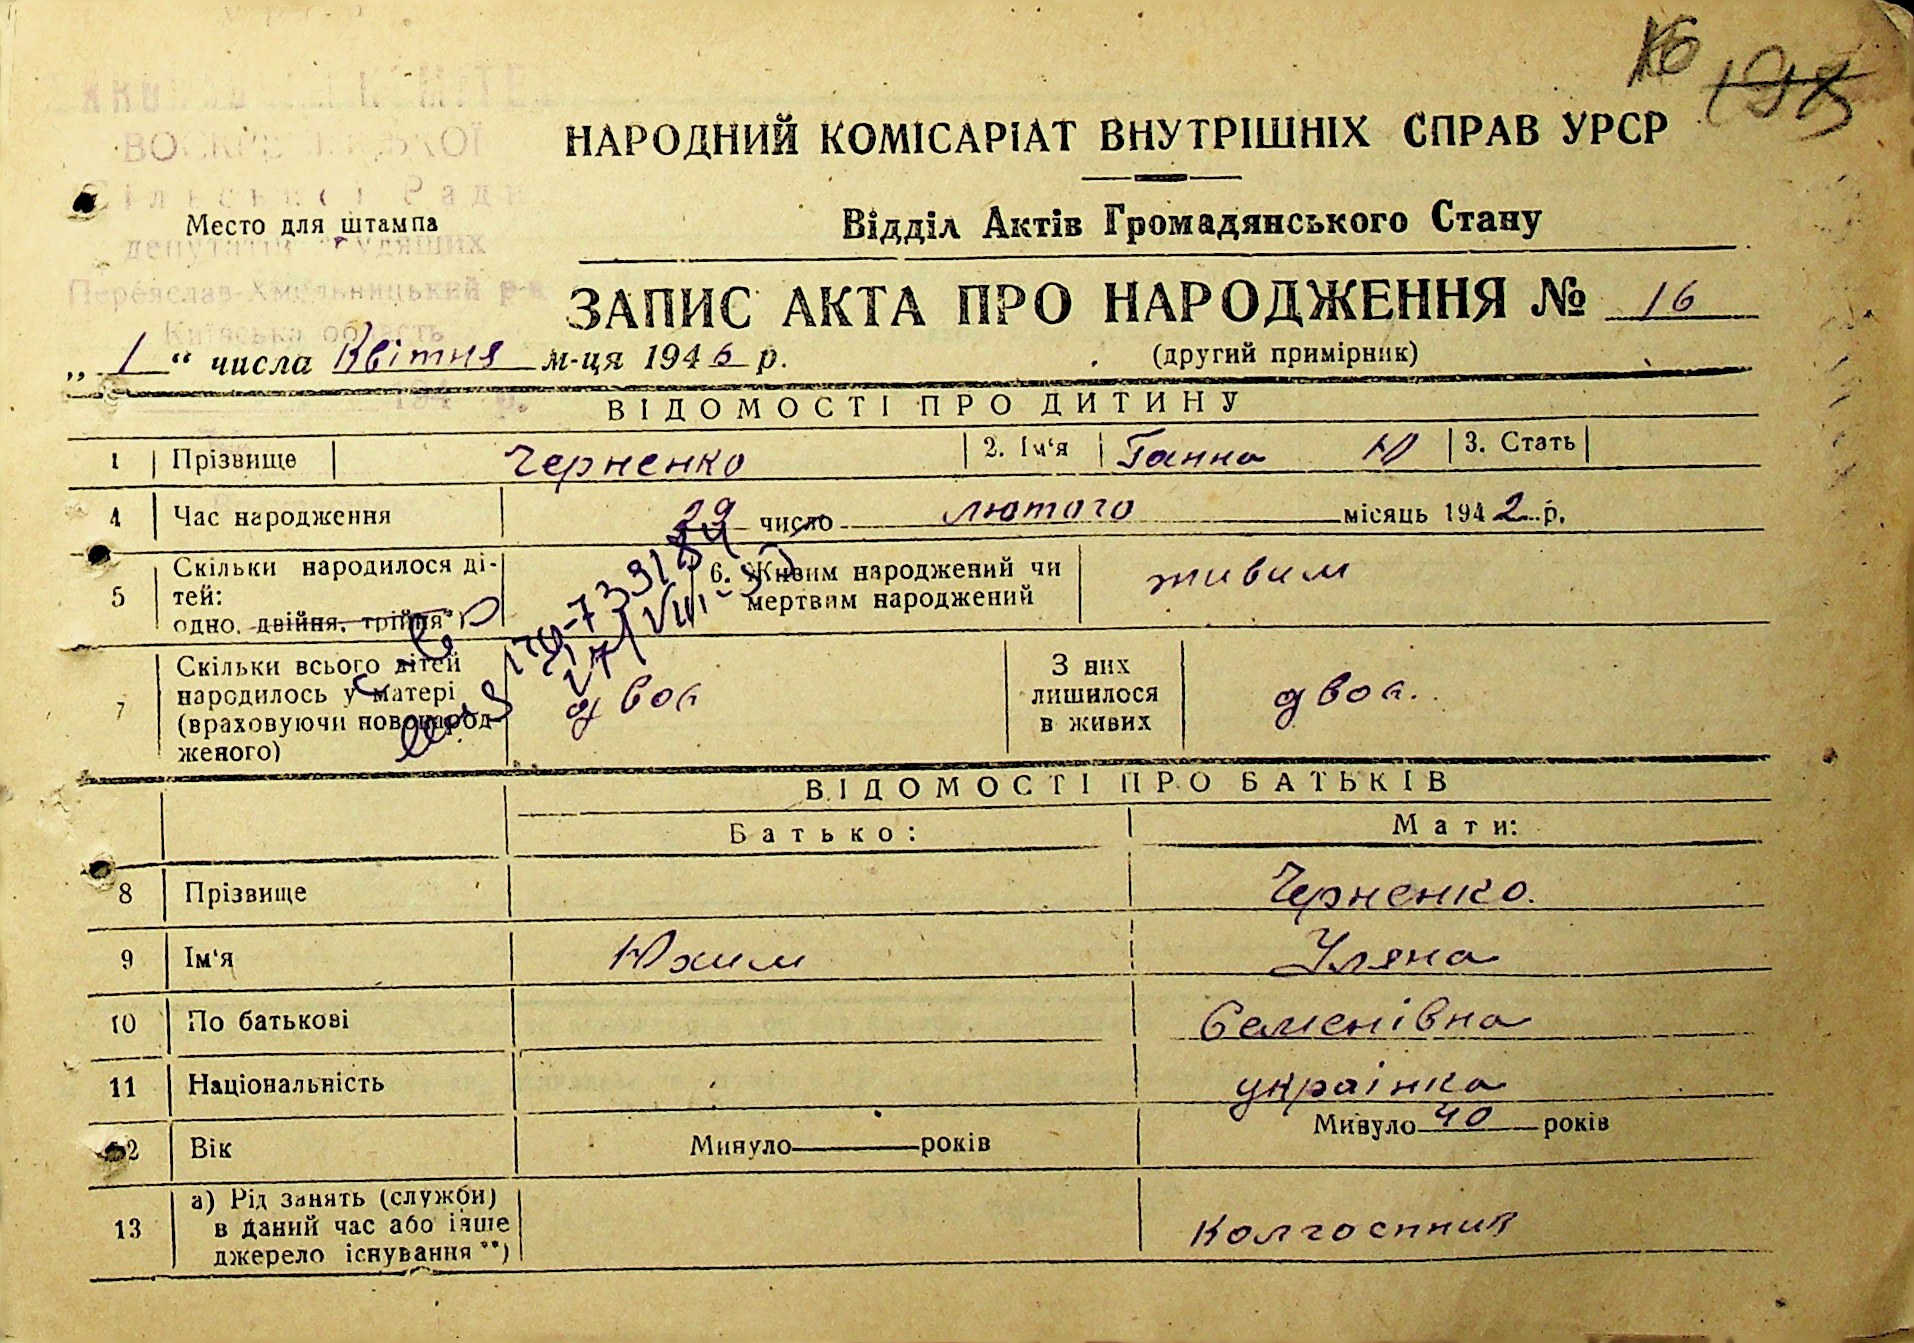 НАРОДНИЙ КОМІСАРІАТ ВНУТРІШНІХ СПРАВ УРСР
Сільської Ради
Место для штампа
Відділ Актів Громадянського Стану
депутатів трудящих
Переяслав-Хмельницький р-н
Київська область
ЗАПИС АКТА ПРО НАРОДЖЕННЯ № 16
„ 1 “ числа Квітня м-ця 1946 р.
(другий примірник)
ВІДОМОСТІ ПРО ДИТИНУ
1 Прізвище Черненко 2. Ім'я Ганна Ю 3. Стать
4 Час народження 29 число лютого місяць 1942 р.
5 Скільки народилося ді-
тей:
одно, двійня, трійня*)
6. Живим народжений чи
мертвим народжений
живим
7 Скільки всього дітей
народилось у матері
(враховуючи новонарод-
женого)
двоє
З них
лишилося
в живих
двоє.
ВІДОМОСТІ ПРО БАТЬКІВ
Батько: Мати:
8 Прізвище Черненко.
9 Ім'я Юхим Уляна
10 По батькові Семенівна
11 Національність українка
12 Вік Минуло років Минуло 40 років
13 а) Рід занять (служби)
в даний час або інше
джерело існування**)
Колгоспник